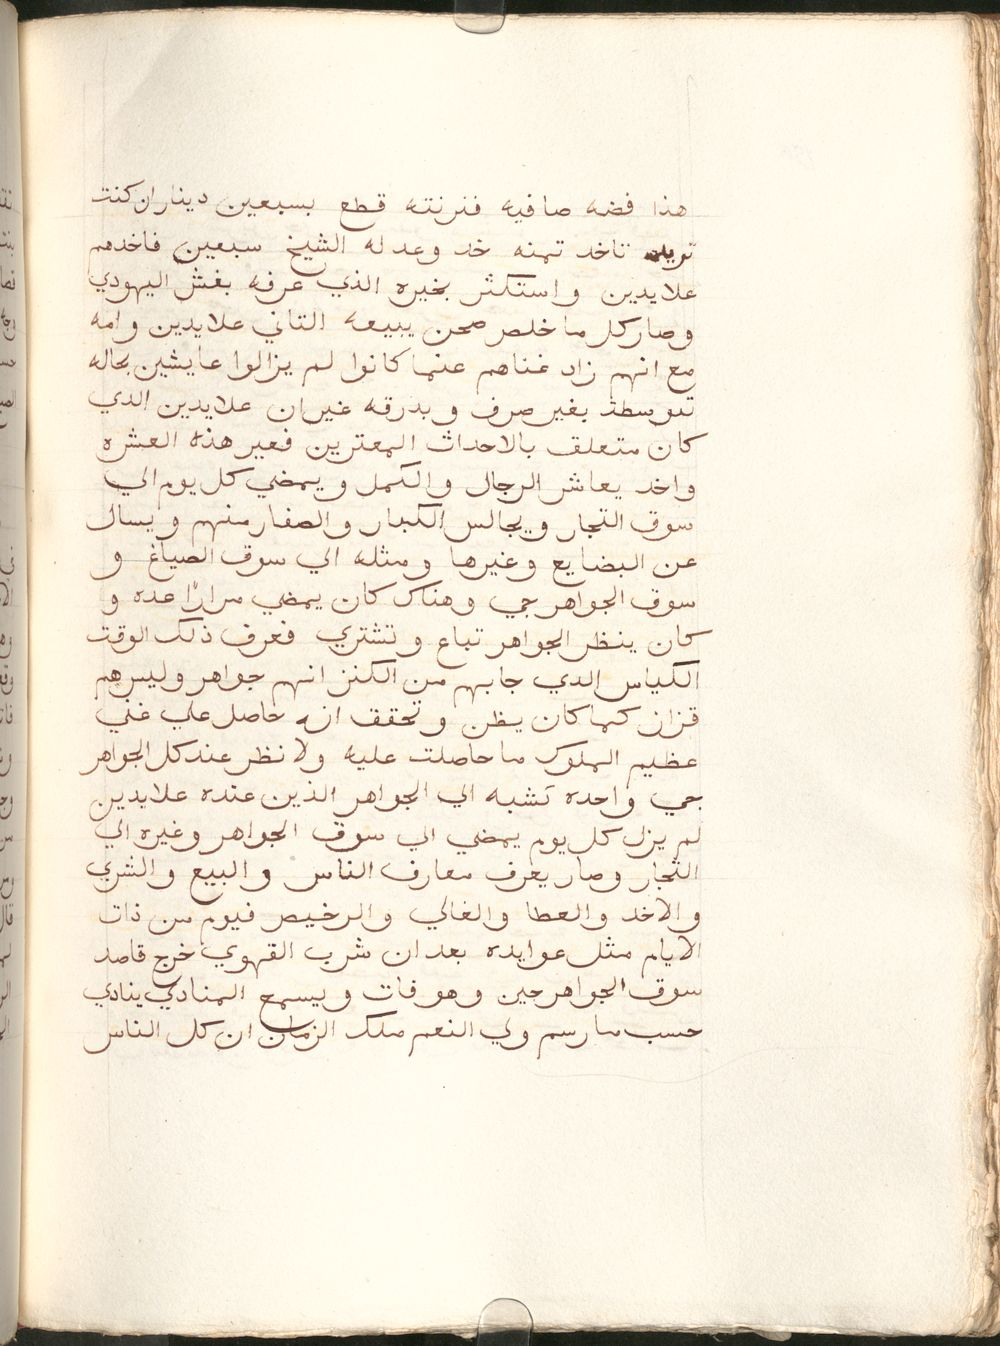 هذا فضه صافيه فنرنته قطع بسبعين دينار ان كنت
تريد تاخد تمنه خد وعد له الشيخ سبعين فاخدهم
علايدين واستكثر بخيره الذي عرفه بغش اليهودي
وصار كل ما خلص صحن يبيعه التاني علايدين وامه
مع انهم زاد غناهم عنما كانوا لم يزالوا عايشين بحاله
توسطة بغير صرف وبدرقه غير ان علايدين الدي
كان متعلق بالاحداث المعترين فعير هذه العشره
واخد يعاشر الرجال والكمل ويمضي كل يوم الي
سوق التجار ويجالس الكبار والصغار منهم ويسال
عن البضايع وغيرها ومثله الي سوق الصياغ و
سوق الجواهرجي وهناك كان يمضي مرارًا عده و
كان ينظر الجواهر تباع وتشتري فعرف ذلك الوقت
الكياس الدي جابهم من الكنز انهم جواهر وليس هم
قزاز كما كان يظن وتحقق انه حاصل علي غني
عظيم الملوك ما حاصلت عليه ولا نظر عند كل الجواهر
جي واحده تشبه الي الجواهر الذين عنده علايدين
لم يزل كل يوم يمضي الي سوق الجواهر وغيره الي
التجار وصار يعرف معارف الناس والبيع والشري
والاخد والعطا والغالي والرخيص فيوم من ذات
الايام مثل عوايده بعد ان شرب القهوي خرج قاصد
سوق الجواهرجين وهو فات ويسمع المنادي ينادي
حسب ما رسم ولي النعم ملك الزمان ان كل الناس